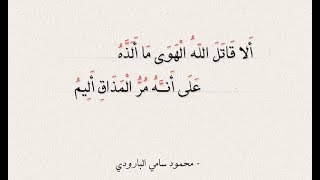 أَلا قَاتَلَ اللّهُ الْهَوَى مَا أَلَذَّهُ
عَلَى أَنــَّهُ مُرُّ الْمَذَاقِ أَلِيمُ
- محمود سامي البارودي